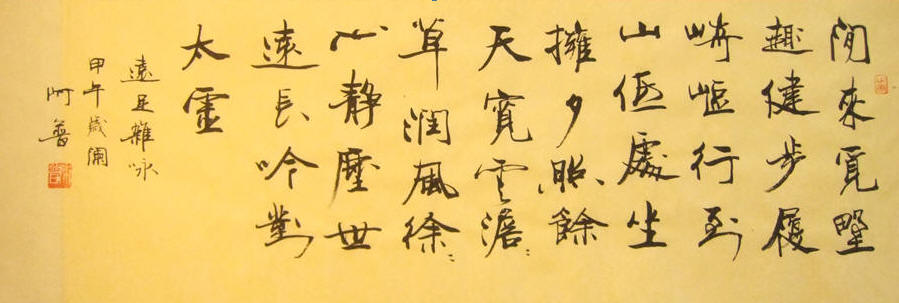 閒來覓野
趣健步履
崎嶇行到
山低處坐
擁夕照餘
天寬雲澹〻
草潤風徐〻
心靜塵世
遠長吟對
太虛
遠足雜詠
甲午歲闌
阿